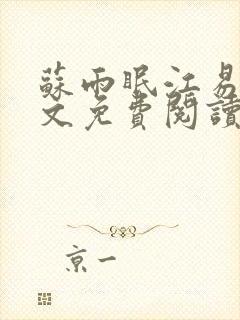 蘇雨眠江易
文免費閱讀
京一